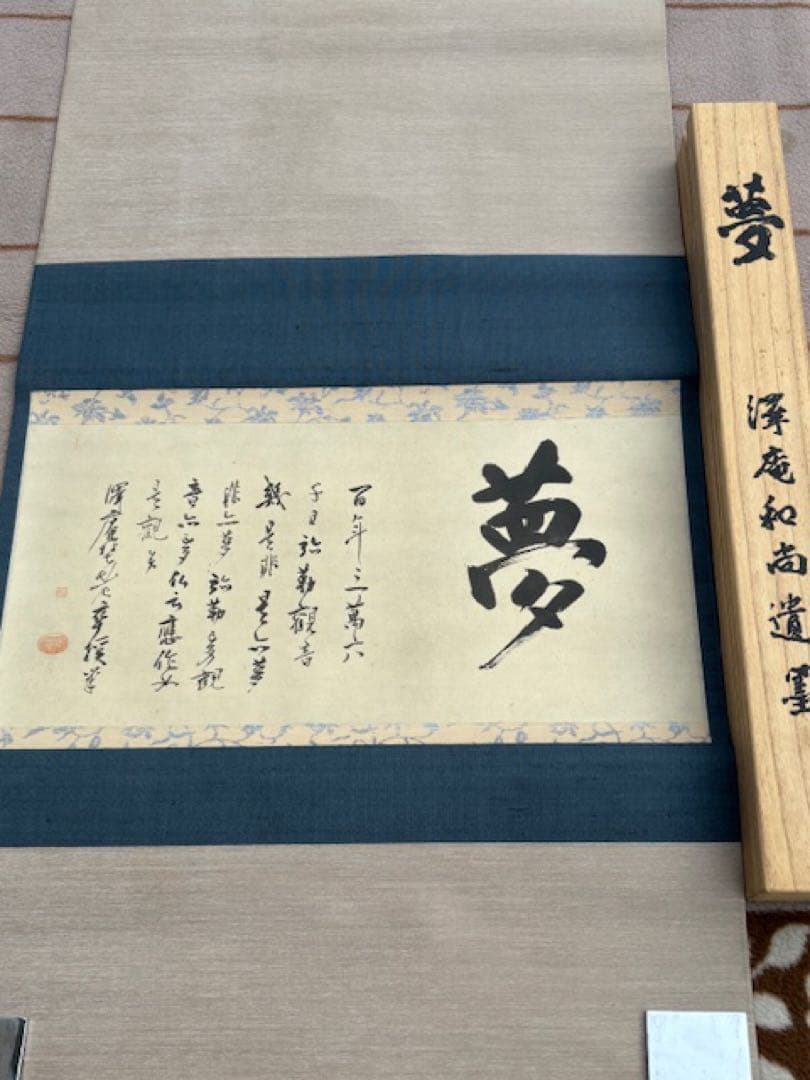 夢
百年三萬六
千日弥勒觀音
幾是非是亦夢
非亦夢弥勒夢觀
音亦夢仏云應作如
是觀矣
澤庵援筆
夢
澤庵和尚遺墨